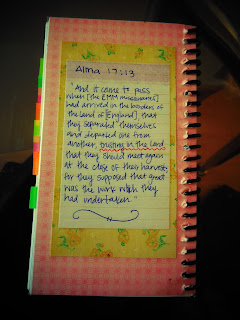 Alma 17:13
"And it came to pass
when [the EMM missionaries]
had arrived in the borders of
the land of [England] that
they separated themselves
and departed one from
another, trusting in the Lord
that they should meet again
at the close of their harvest;
for they supposed that great
was the work which they
had undertaken."